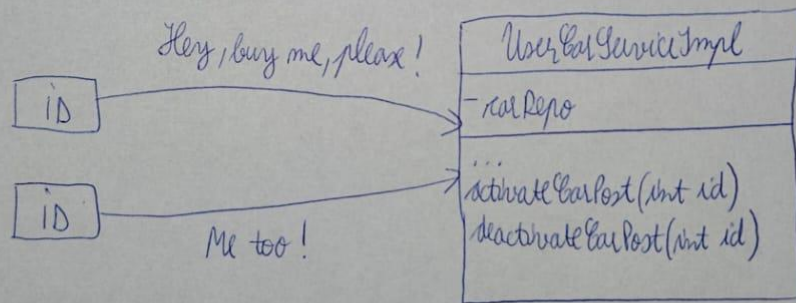 Hey, buy me, please!
ID
ID
Me too!
UserCarServiceImpl
-carRepo
...
activateCarPost(int id)
deactivateCarPost(int id)